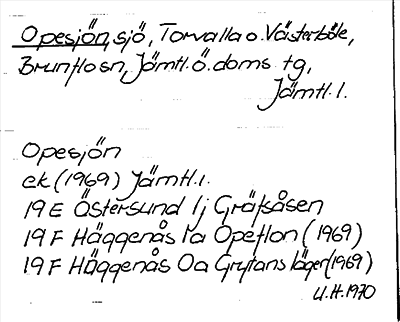 Opesjön, sjö, Torvalla o. Västerböle,
Brunflo sn, Jämtl. ö. doms. tg,
Jämtl. l.
Opesjön
ek (1969) Jämtl. l.
19 E Östersund 1j Gräfsåsen
19 F Häggenås 1a Opeflon (1969)
19 F Häggenås 0a Grytans läger (1969)
U.H. 1970